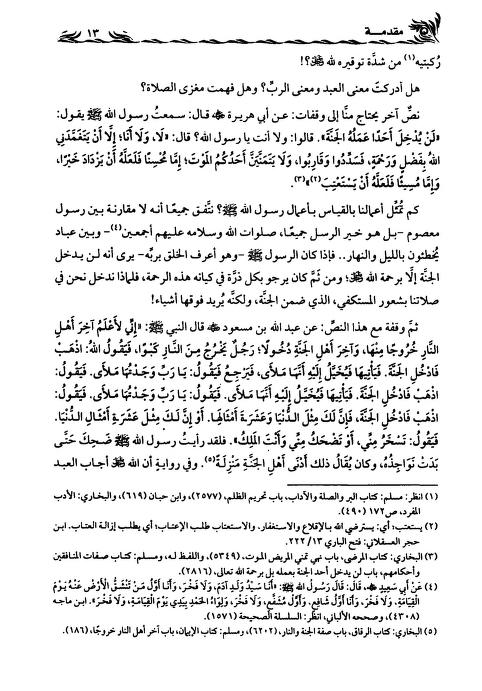 مقدمـــة
١٣
رُكبتيه(١) من شدَّة توقيره لله ﷻ؟!
هل أدركتَ معنى العبد ومعنى الربِّ؟ وهل فهمت مغزى الصلاة؟
نصٌّ آخر يحتاج منَّا إلى وقفات: عن أبي هريرة ﵁ قال: سمعتُ رسول الله ﷺ يقول:
«لَنْ يُدْخِلَ أَحَدًا عَمَلُهُ الجَنَّةَ». قالوا: ولا أنت يا رسول الله؟ قال: «لَا، وَلَا أَنَا؛ إِلَّا أَنْ يَتَغَمَّدَنِي
اللهُ بِفَضْلٍ وَرَحْمَةٍ، فَسَدِّدُوا وَقَارِبُوا، وَلَا يَتَمَنَّيَنَّ أَحَدُكُمُ المَوْتَ؛ إِمَّا مُحْسِنًا فَلَعَلَّهُ أَنْ يَزْدَادَ خَيْرًا،
وَإِمَّا مُسِيئًا فَلَعَلَّهُ أَنْ يَسْتَعْتِبَ(٢)»(٣).
كم تُمثِّل أعمالنا بالقياس بأعمال رسول الله ﷺ؟ نتَّفق جميعًا أنه لا مقارنة بين رسول
معصوم -بل هو خير الرسل جميعًا، صلوات الله وسلامه عليهم أجمعين(٤)- وبين عباد
يُخطئون بالليل والنهار.. فإذا كان الرسول ﷺ -وهو أعرف الخلق بربِّه- يرى أنه لن يدخل
الجنَّة إلَّا برحمة الله ﷻ؛ ومن ثَمَّ كان يرجو بكل ذرَّة في كيانه هذه الرحمة، فلماذا ندخل نحن في
صلاتنا بشعور المستكفي، الذي ضمن الجنَّة، ولكنَّه يُريد فوقها أشياء!
ثمَّ وقفة مع هذا النصِّ: عن عبد الله بن مسعود ﵁ قال النبي ﷺ: «إِنِّي لَأَعْلَمُ آخِرَ أَهْلِ
النَّارِ خُرُوجًا مِنْهَا، وَآخِرَ أَهْلِ الجَنَّةِ دُخُولًا؛ رَجُلٌ يَخْرُجُ مِنَ النَّارِ كَبْوًا، فَيَقُولُ اللهُ: اذْهَبْ
فَادْخُلِ الجَنَّةَ. فَيَأْتِيهَا فَيُخَيَّلُ إِلَيْهِ أَنَّهَا مَلْأَى، فَيَرْجِعُ فَيَقُولُ: يَا رَبِّ وَجَدْتُهَا مَلْأَى. فَيَقُولُ:
اذْهَبْ فَادْخُلِ الجَنَّةَ. فَيَأْتِيهَا فَيُخَيَّلُ إِلَيْهِ أَنَّهَا مَلْأَى. فَيَقُولُ: يَا رَبِّ وَجَدْتُهَا مَلْأَى. فَيَقُولُ:
اذْهَبْ فَادْخُلِ الجَنَّةَ، فَإِنَّ لَكَ مِثْلَ الدُّنْيَا وَعَشَرَةَ أَمْثَالِهَا. أَوْ إِنَّ لَكَ مِثْلَ عَشَرَةِ أَمْثَالِ الدُّنْيَا.
فَيَقُولُ: تَسْخَرُ مِنِّي، أَوْ تَضْحَكُ مِنِّي وَأَنْتَ المَلِكُ». فلقد رأيتُ رسول الله ﷺ ضَحِكَ حَتَّى
بَدَتْ نَوَاجِذُهُ، وكان يُقال ذلك أَدْنَى أَهْلِ الجَنَّةِ مَنْزِلَةً(٥). وفي روايةٍ أن الله ﷻ أجاب العبد
(١) انظر: مسلم: كتاب البر والصلة والآداب، باب تحريم الظلم، (٢٥٧٧)، وابن حبان (٦١٩)، والبخاري: الأدب
المفرد، ص١٧٢ (٤٩٠).
(٢) يستعتب؛ أي: يسترضي الله بالإقلاع والاستغفار. والاستعتاب طلب الإعتاب؛ أي يطلب إزالة العتاب. ابن
حجر العسقلاني: فتح الباري ١٣/ ٢٢٢.
(٣) البخاري: كتاب المرضى، باب نهي تمني المريض الموت، (٥٣٤٩)، واللفظ له، ومسلم: كتاب صفات المنافقين
وأحكامهم، باب لن يدخل أحد الجنة بعمله بل برحمة الله تعالى، (٢٨١٦).
(٤) عَنْ أَبِي سَعِيدٍ ﵁، قَالَ: قَالَ رَسُولُ اللهِ ﷺ: «أَنَا سَيِّدُ وَلَدِ آدَمَ، وَلَا فَخْرَ، وَأَنَا أَوَّلُ مَنْ تَنْشَقُّ الْأَرْضُ عَنْهُ يَوْمَ
الْقِيَامَةِ، وَلَا فَخْرَ، وَأَنَا أَوَّلُ شَافِعٍ، وَأَوَّلُ مُشَفَّعٍ، وَلَا فَخْرَ، وَلِوَاءُ الحَمْدِ بِيَدِي يَوْمَ الْقِيَامَةِ، وَلَا فَخْرَ». ابن ماجه
(٤٣٠٨)، وصححه الألباني، انظر: السلسلة الصحيحة (١٥٧١).
(٥) البخاري: كتاب الرقاق، باب صفة الجنة والنار، (٦٢٠٢)، ومسلم: كتاب الإيمان، باب آخر أهل النار خروجًا، (١٨٦).